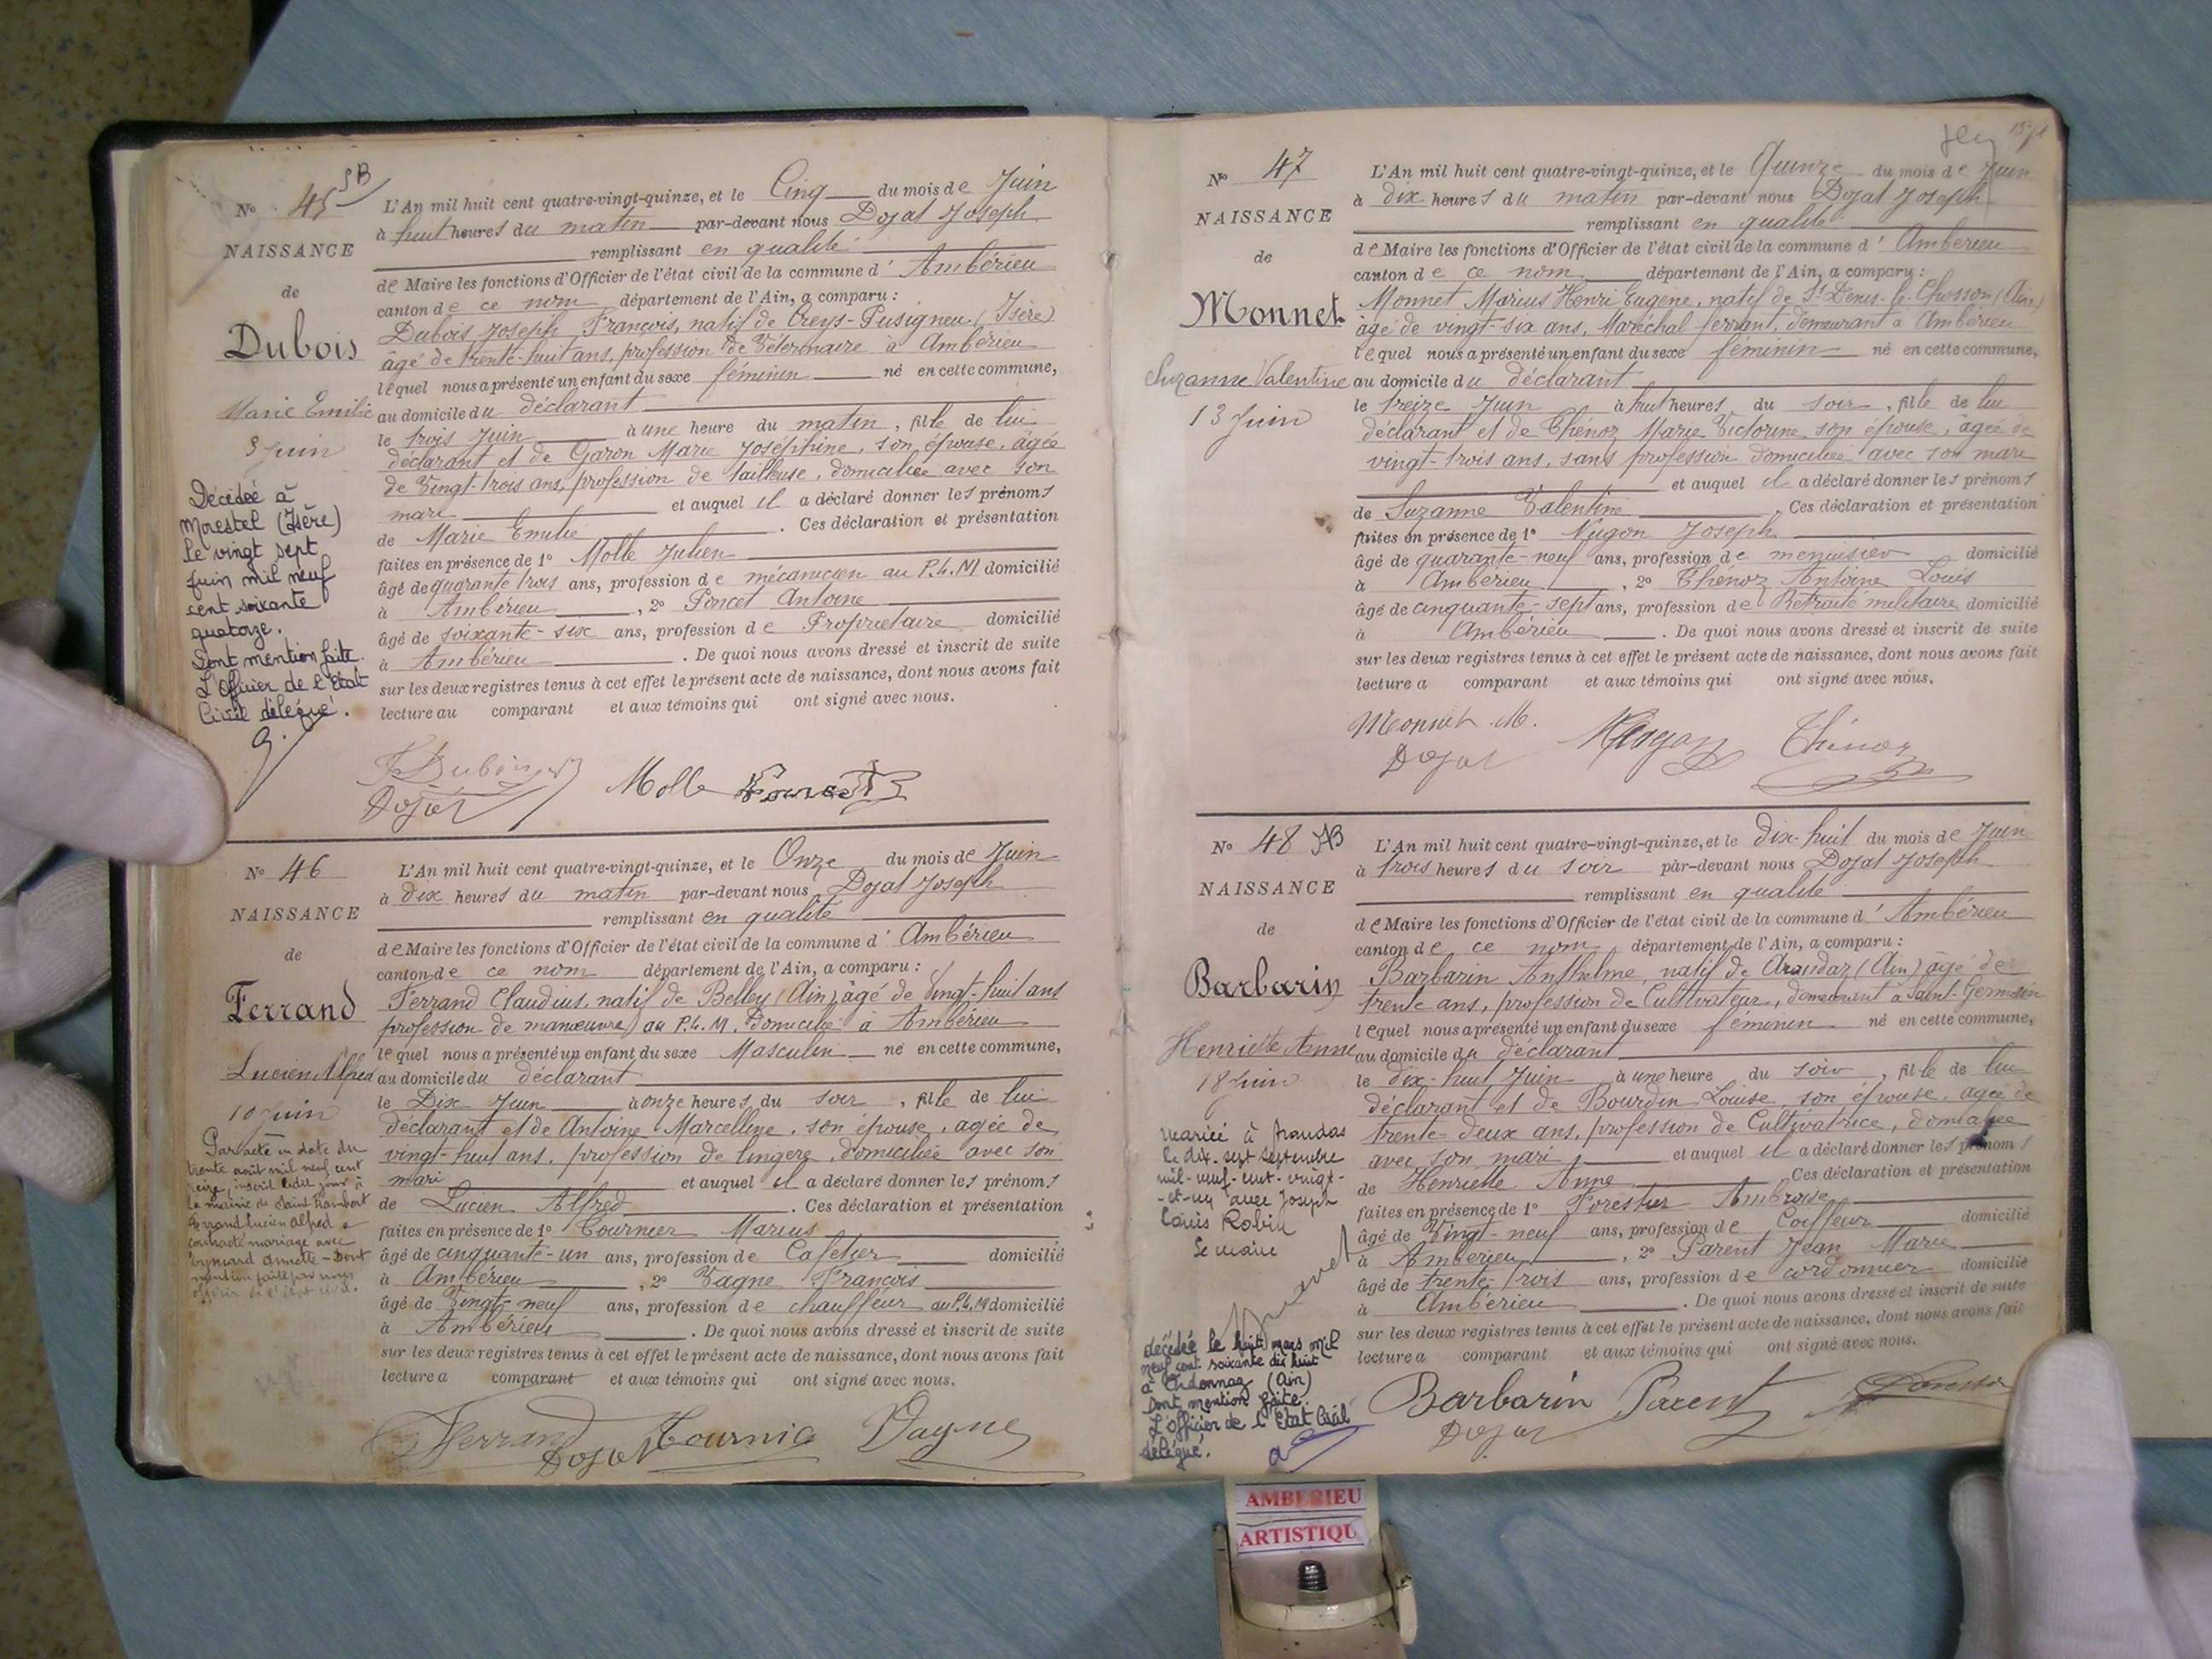 N° 45 SB
NAISSANCE
de
Dubois
Marie Emilie
3 Juin
Décédée à
Morestel (Isère)
le vingt sept
juin mil neuf
cent soixante
quatorze.
Dont mention faite.
L'Officier de l'Etat
Civil délégué.
L'An mil huit cent quatre-vingt-quinze, et le Cinq du mois de Juin
à huit heures du matin par-devant nous Dojat Joseph
remplissant en qualité
de Maire les fonctions d'Officier de l'état civil de la commune d'Ambérieu
canton de ce nom département de l'Ain, a comparu :
Dubois Joseph François, natif de Creys-Pusigneu (Isère)
âgé de trente-huit ans, profession de Vétérinaire à Ambérieu
lequel nous a présenté un enfant du sexe féminin né en cette commune,
au domicile du déclarant
le trois Juin à une heure du matin, fille de lui
déclarant et de Garon Marie Joséphine, son épouse, âgée
de Vingt-trois ans, profession de tailleuse, domiciliée avec son
mari et auquel il a déclaré donner les prénoms
de Marie Emilie. Ces déclaration et présentation
faites en présence de 1° Molle Julien
âgé de quarante trois ans, profession de mécanicien au P.L.M domicilié
à Ambérieu, 2° Poncet Antoine
âgé de soixante-six ans, profession de Propriétaire domicilié
à Ambérieu. De quoi nous avons dressé et inscrit de suite
sur les deux registres tenus à cet effet le présent acte de naissance, dont nous avons fait
lecture au comparant et aux témoins qui ont signé avec nous.
Dubois Molle Poncet
Dojat
N° 46
NAISSANCE
de
Ferrand
Lucien Alfred
10 Juin
Par acte en date du
trente août mil neuf cent
, inscrit ledit jour à
la mairie de Saint Rambert
Ferrand Lucien Alfred a
contracté mariage avec
Annette - Dont
mention faite par nous
officier de l'état civil.
L'An mil huit cent quatre-vingt-quinze, et le Onze du mois de Juin
à dix heures du matin par-devant nous Dojat Joseph
remplissant en qualité
de Maire les fonctions d'Officier de l'état civil de la commune d'Ambérieu
canton de ce nom département de l'Ain, a comparu :
Ferrand Claudius, natif de Belley (Ain), âgé de Vingt-huit ans
profession de manœuvre au P.L.M. domicilié à Ambérieu
lequel nous a présenté un enfant du sexe Masculin né en cette commune,
au domicile du déclarant
le Dix Juin à onze heures du soir, fille de lui
déclarant et de Antoine Marcelline, son épouse, agée de
vingt-huit ans, profession de lingère, domiciliée avec son
mari et auquel il a déclaré donner les prénoms
de Lucien Alfred. Ces déclaration et présentation
faites en présence de 1° Tournier Marius
âgé de cinquante-un ans, profession de Cafetier domicilié
à Ambérieu, 2° Vagne François
âgé de Vingt-neuf ans, profession de chauffeur au P.L.M domicilié
à Ambérieu. De quoi nous avons dressé et inscrit de suite
sur les deux registres tenus à cet effet le présent acte de naissance, dont nous avons fait
lecture a comparant et aux témoins qui ont signé avec nous.
Ferrand Dojat Tournier Vagne
N° 47
NAISSANCE
de
Monnet
Suzanne Valentine
13 Juin
L'An mil huit cent quatre-vingt-quinze, et le Quinze du mois de Juin
à dix heures du matin par-devant nous Dojat Joseph
remplissant en qualité
de Maire les fonctions d'Officier de l'état civil de la commune d'Ambérieu
canton de ce nom département de l'Ain, a comparu :
Monnet Marius Henri Eugène, natif de St Denis-le-Chosson (Ain)
âgé de vingt-six ans, Maréchal ferrant, demeurant à Ambérieu
lequel nous a présenté un enfant du sexe féminin né en cette commune,
au domicile du déclarant
le treize Juin à huit heures du soir, fille de lui
déclarant et de Thénoz Marie Victorine son épouse, âgée de
vingt-trois ans, sans profession domiciliée avec son mari
et auquel il a déclaré donner les prénoms
de Suzanne Valentine. Ces déclaration et présentation
faites en présence de 1° Nugon Joseph
âgé de quarante-neuf ans, profession de menuisier domicilié
à Ambérieu, 2° Thénoz Antoine Louis
âgé de cinquante-sept ans, profession de Retraité militaire domicilié
à Ambérieu. De quoi nous avons dressé et inscrit de suite
sur les deux registres tenus à cet effet le présent acte de naissance, dont nous avons fait
lecture a comparant et aux témoins qui ont signé avec nous.
Monnet M. Nugon Thénoz
Dojat
N° 48
NAISSANCE
de
Barbarin
Henriette Anne
18 Juin
Mariée à Arandas
le dix-sept septembre
mil-neuf-cent-vingt-
-et-un avec Joseph
Louis Robin
Le maire
décédée le huit mars mil
neuf cent soixante dix huit
à Ordonnaz (Ain)
Dont mention faite.
L'Officier de l'Etat Civil
délégué.
L'An mil huit cent quatre-vingt-quinze, et le dix-huit du mois de Juin
à trois heures du soir par-devant nous Dojat Joseph
remplissant en qualité
de Maire les fonctions d'Officier de l'état civil de la commune d'Ambérieu
canton de ce nom département de l'Ain, a comparu :
Barbarin Anthelme, natif de Arandaz (Ain) âgé de
trente ans, profession de Cultivateur, demeurant à Saint-Germain
lequel nous a présenté un enfant du sexe féminin né en cette commune,
au domicile du déclarant
le dix-huit Juin à une heure du soir, fille de lui
déclarant et de Bourdin Louise, son épouse, agée de
trente-deux ans, profession de Cultivatrice, domiciliée
avec son mari et auquel il a déclaré donner les prénoms
de Henriette Anne Ces déclaration et présentation
faites en présence de 1° Forestier Ambroise
âgé de Vingt-neuf ans, profession de Coiffeur domicilié
à Ambérieu, 2° Parent Jean Marie
âgé de trente-trois ans, profession de cordonnier domicilié
à Ambérieu. De quoi nous avons dressé et inscrit de suite
sur les deux registres tenus à cet effet le présent acte de naissance, dont nous avons fait
lecture a comparant et aux témoins qui ont signé avec nous.
Barbarin Parent
Dojat
AMBERIEU
ARTISTIQU